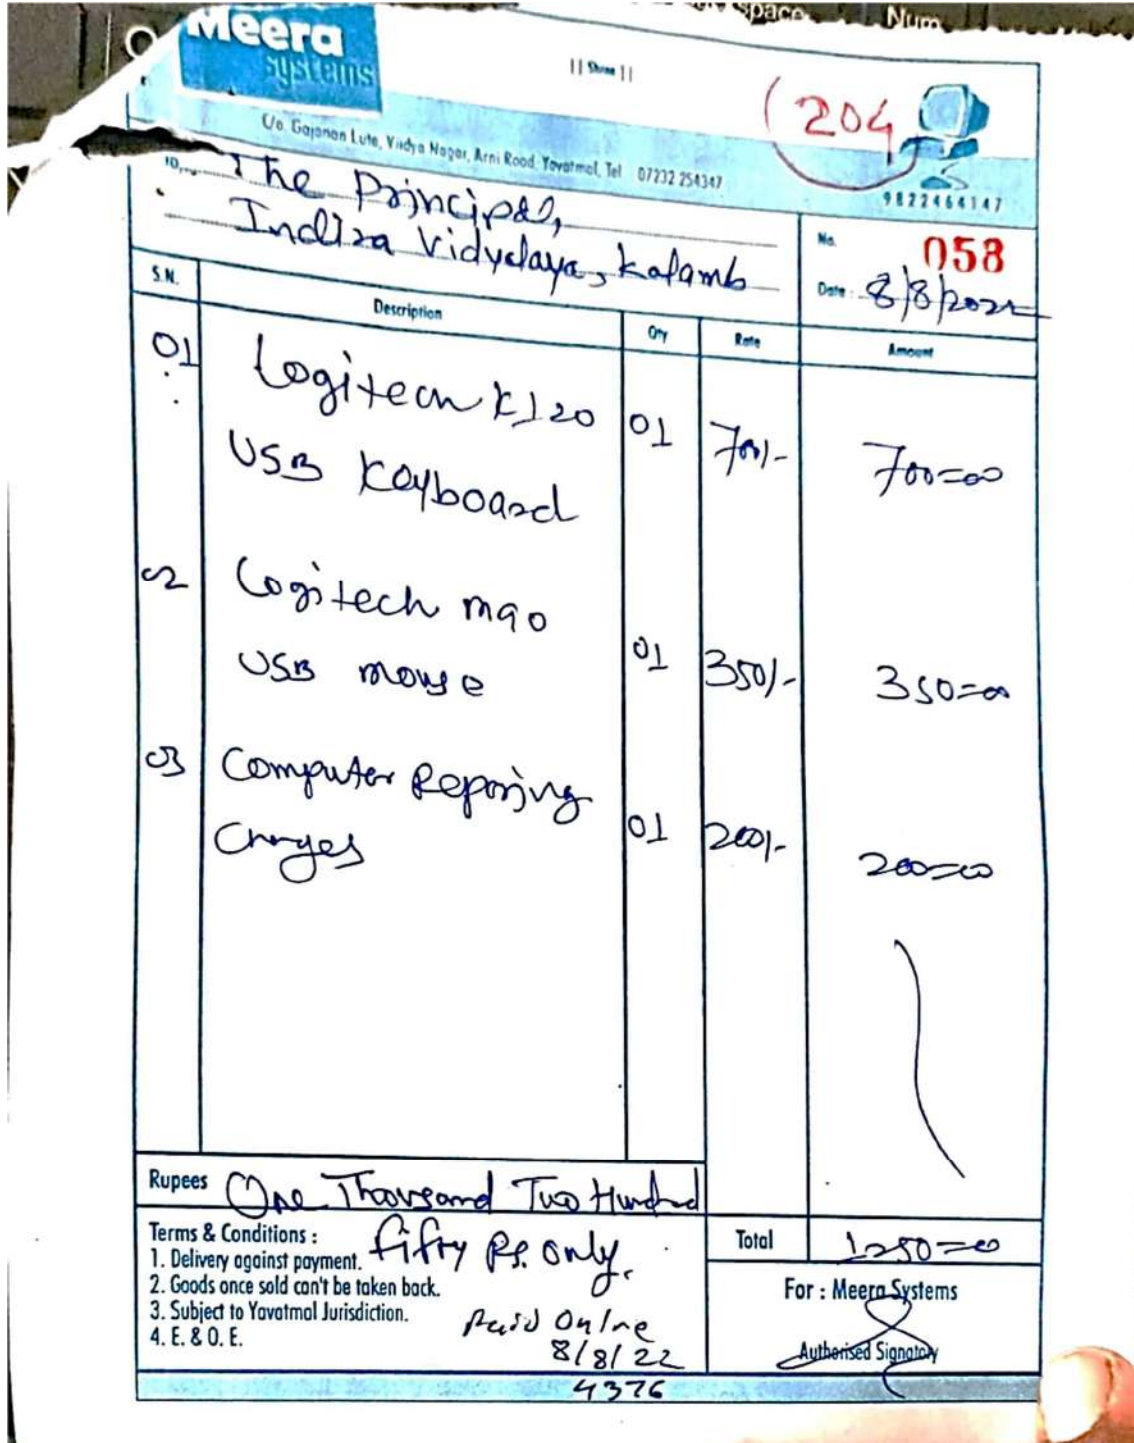 space
Num
Meera
systems
|| Shree ||
(204)
C/o. Gajanan Lute, Vidya Nagar, Arni Road, Yavatmal, Tel. 07232 254347
9822464147
To,
The Principal,
Indira Vidyalaya, Kalamb
No. 058
Date : 8/8/2022
S.N. Description Qty Rate Amount
01 Logitech K120 01 700/- 700=00
USB Keyboard
02 Logitech M90
USB mouse 01 350/- 350=00
03 Computer Reparing
Charges 01 200/- 200=00
Rupees One Thousand Two Hundred
fifty Rs. only.
Terms & Conditions :
1. Delivery against payment.
2. Goods once sold can't be taken back.
3. Subject to Yavatmal Jurisdiction.
4. E. & O. E.
Paid Online
8/8/22
4376
Total 1250=00
For : Meera Systems
Authorised Signatory